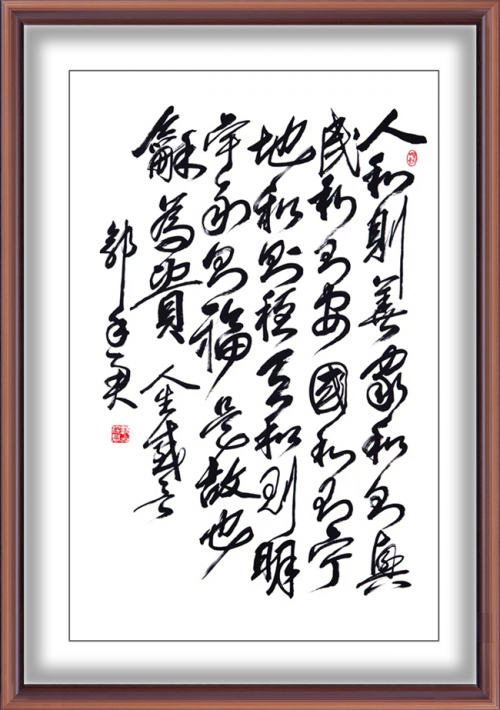 人和則善家和則興
民和則安國和則宁
地和則穩天和則明
宇和則福是故也
龢為貴 人生感言